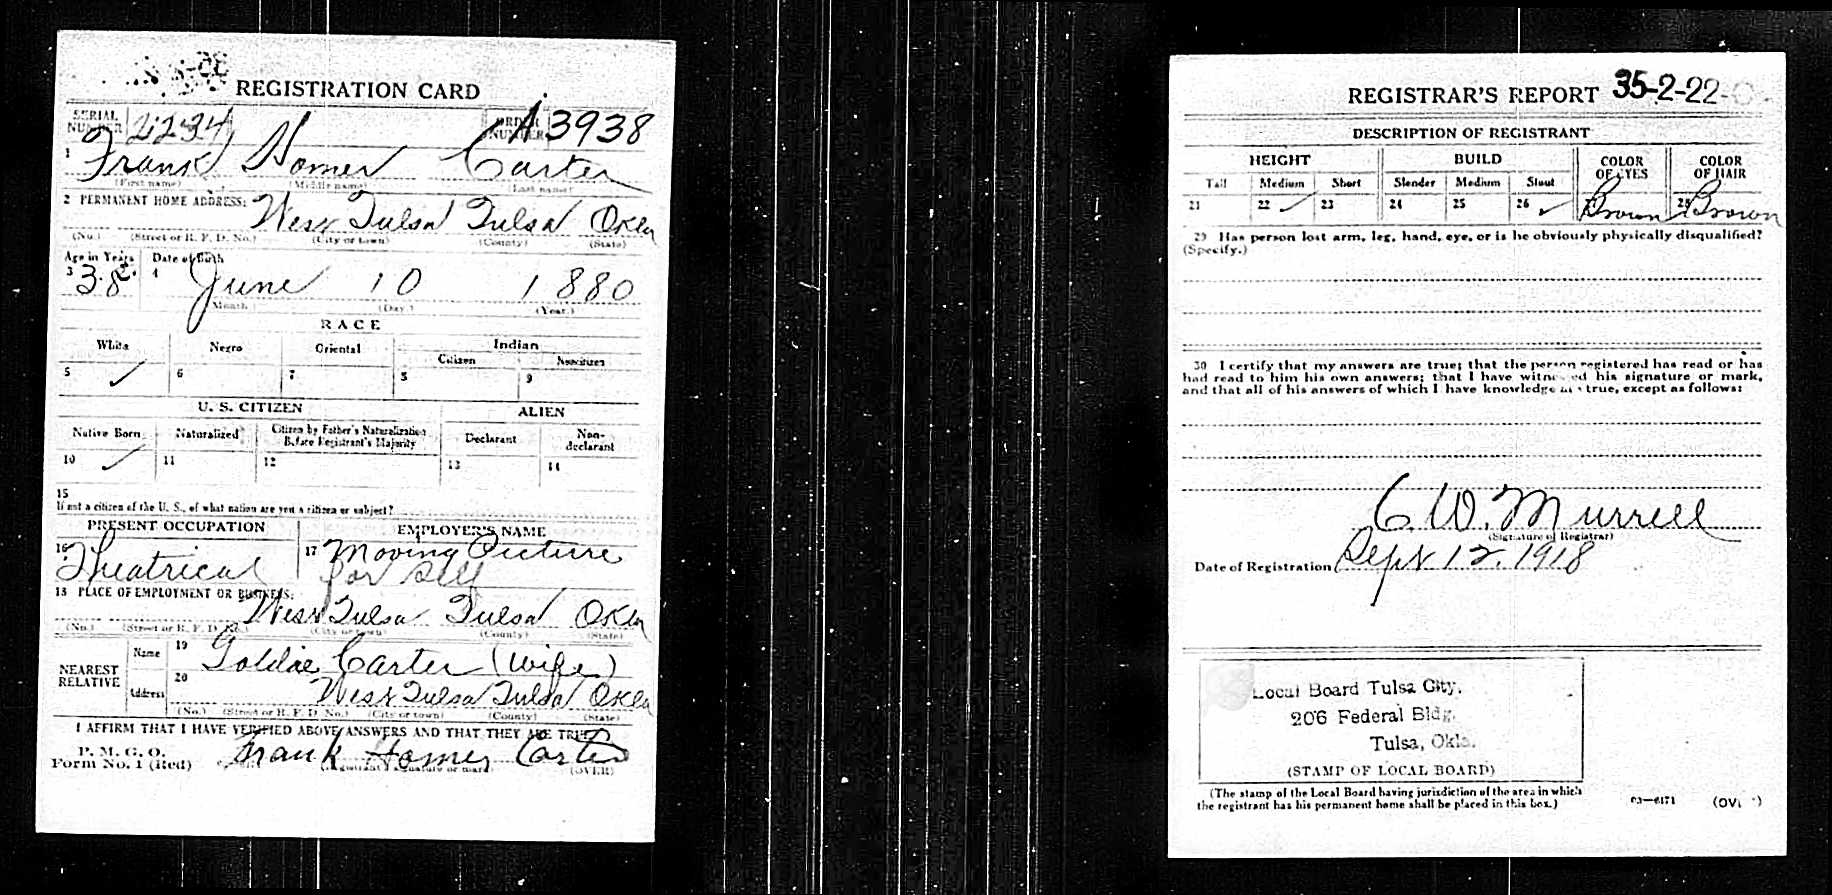 REGISTRATION CARD
SERIAL NUMBER 2234 ORDER NUMBER A3938
1 Frank Homer Carter
(First name) (Middle name) (Last name)
2 PERMANENT HOME ADDRESS: West Tulsa Tulsa Okla
(No.) (Street or R. F. D. No.) (City or town) (County) (State)
Age in Years Date of Birth
3 38 4 June 10 1880
(Month.) (Day.) (Year.)
RACE
White Negro Oriental Indian
Citizen Noncitizen
5 ✓ 6 7 8 9
U. S. CITIZEN ALIEN
Native Born Naturalized Citizen by Father's Naturalization Before Registrant's Majority Declarant Non-declarant
10 ✓ 11 12 13 14
15
If not a citizen of the U. S., of what nation are you a citizen or subject?
PRESENT OCCUPATION EMPLOYER'S NAME
16 Theatrical 17 Moving Picture
for self
18 PLACE OF EMPLOYMENT OR BUSINESS:
West Tulsa Tulsa Okla
(No.) (Street or R. F. D. No.) (City or town) (County) (State)
NEAREST RELATIVE
Name 19 Goldie Carter (wife)
Address 20 West Tulsa Tulsa Okla
(No.) (Street or R. F. D. No.) (City or town) (County) (State)
I AFFIRM THAT I HAVE VERIFIED ABOVE ANSWERS AND THAT THEY ARE TRUE
P. M. G. O.
Form No. 1 (Red) Frank Homer Carter
(Registrant's signature or mark) (OVER)
REGISTRAR'S REPORT 35-2-22-
DESCRIPTION OF REGISTRANT
HEIGHT BUILD COLOR OF EYES COLOR OF HAIR
Tall Medium Short Slender Medium Stout
21 22 ✓ 23 24 25 26 ✓ Brown 28 Brown
29 Has person lost arm, leg, hand, eye, or is he obviously physically disqualified?
(Specify.)
30 I certify that my answers are true; that the person registered has read or has
had read to him his own answers; that I have witnessed his signature or mark,
and that all of his answers of which I have knowledge are true, except as follows:
C. W. Murrell
(Signature of Registrar)
Date of Registration Sept 12, 1918
Local Board Tulsa City.
206 Federal Bldg.
Tulsa, Okla.
(STAMP OF LOCAL BOARD)
(The stamp of the Local Board having jurisdiction of the area in which
the registrant has his permanent home shall be placed in this box.)
03—6171 (OVER)